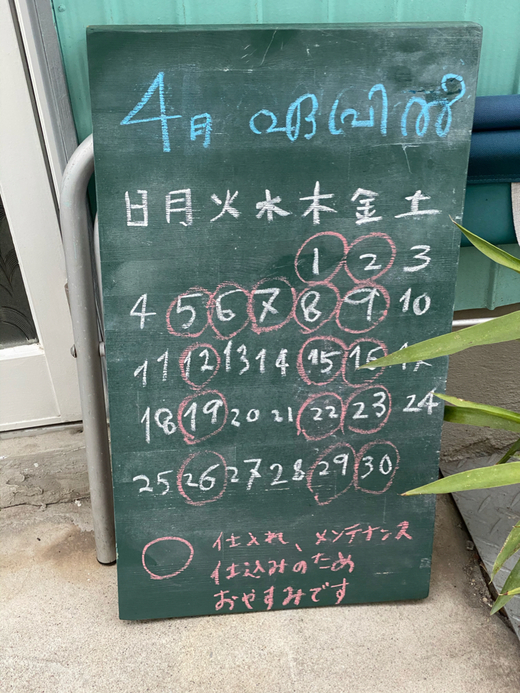 4月 ഏപ്രിൽ
日 月 火 水 木 金 土
1 2 3
4 5 6 7 8 9 10
11 12 13 14 15 16 17
18 19 20 21 22 23 24
25 26 27 28 29 30
仕入れ、メンテナンス
仕込みのため
おやすみです